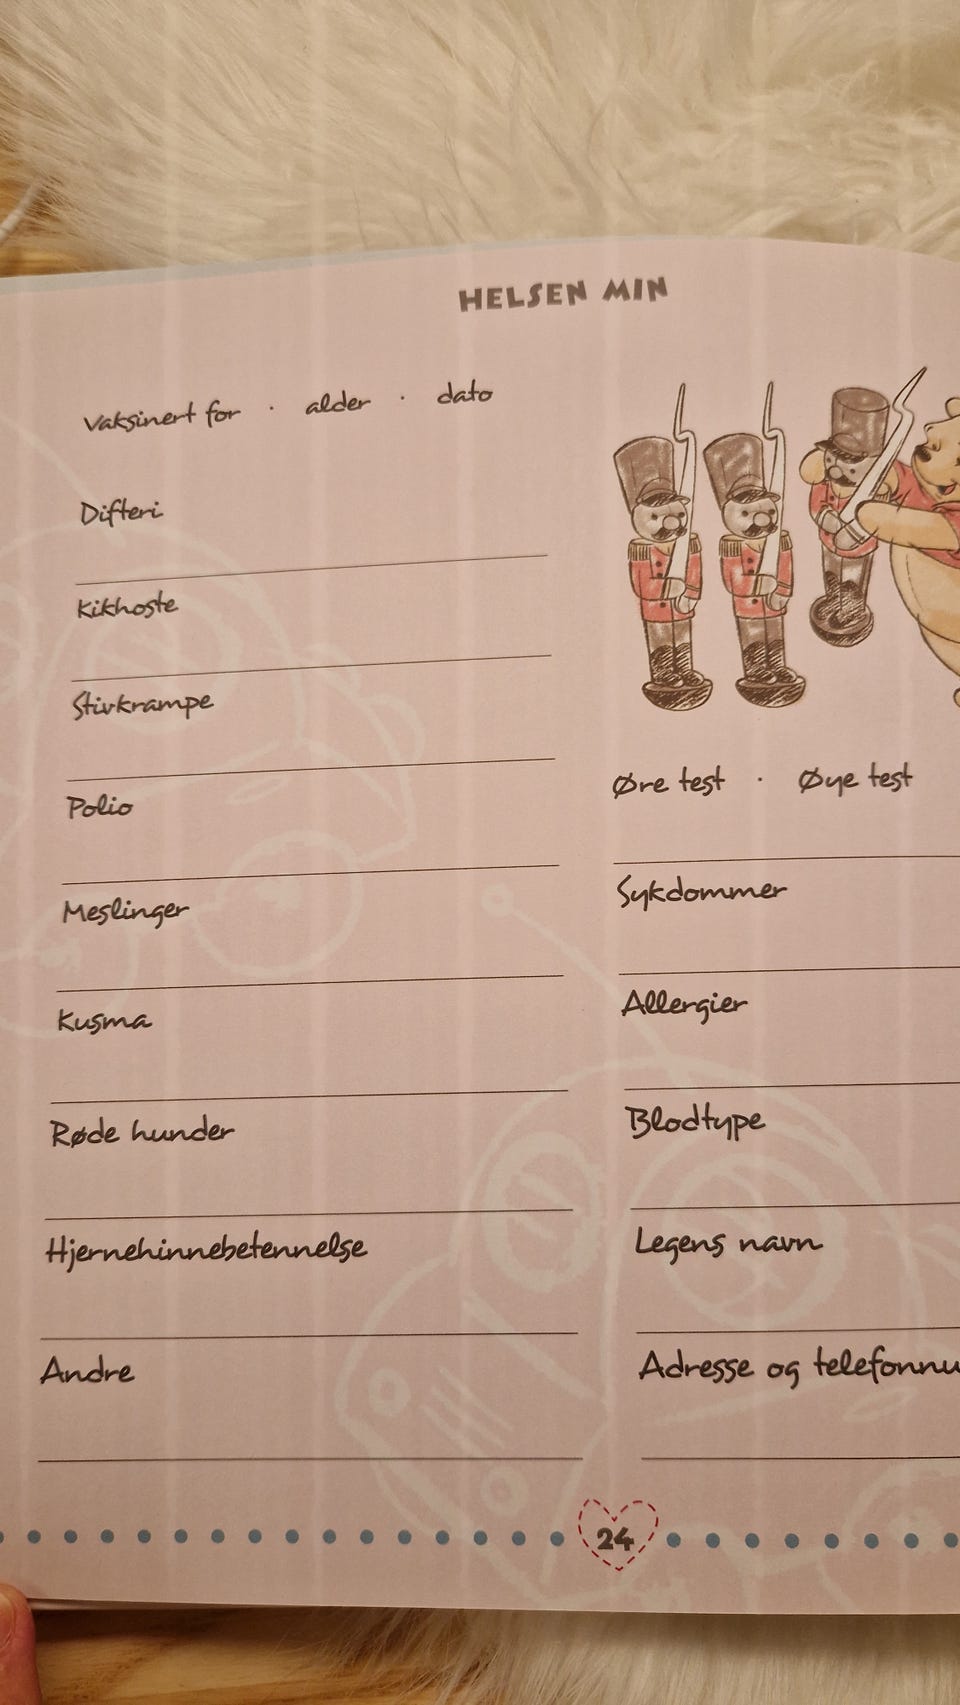 HELSEN MIN
Vaksinert for · alder · dato
Difteri
Kikhoste
Stivkrampe
Polio
Meslinger
Kusma
Røde hunder
Hjernehinnebetennelse
Andre
Øre test · Øye test
Sykdommer
Allergier
Blodtype
Legens navn
Adresse og
24